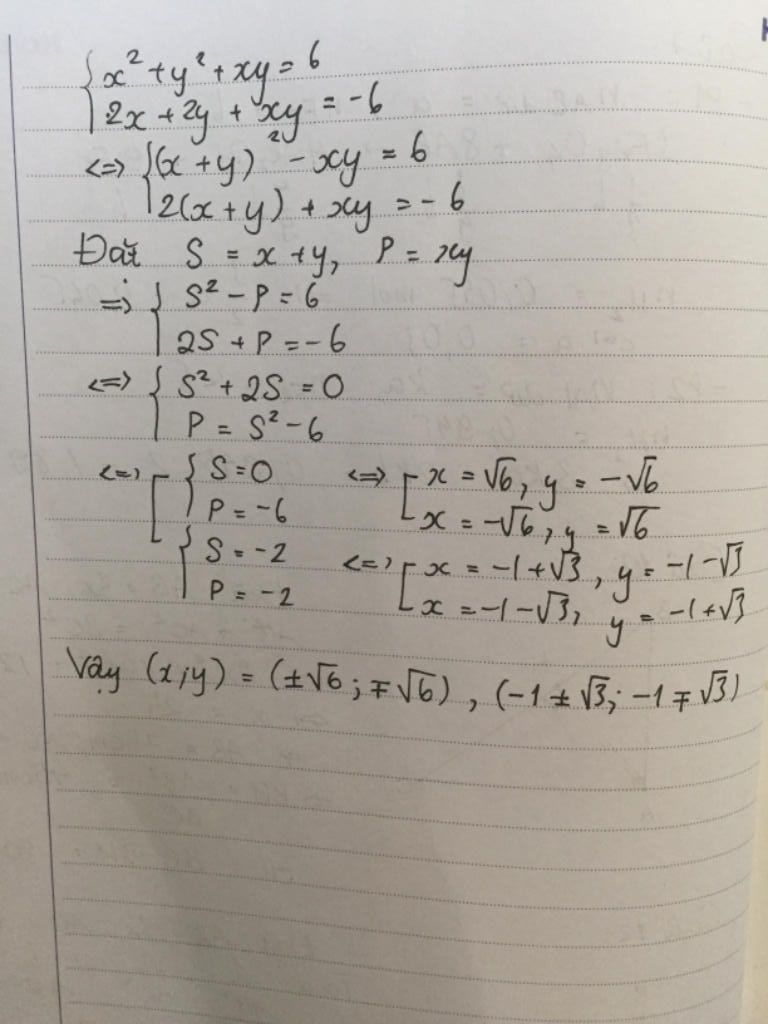 { x² + y² + xy = 6
2x + 2y + xy = -6
<=> { (x + y)² - xy = 6
2(x + y) + xy = -6
Đặt S = x + y, P = xy
=> { S² - P = 6
2S + P = -6
<=> { S² + 2S = 0
P = S² - 6
<=> [ { S = 0 <=> [ x = √6, y = -√6
P = -6 x = -√6, y = √6
{ S = -2 <=> [ x = -1 + √3, y = -1 - √3
P = -2 x = -1 - √3, y = -1 + √3
Vậy (x; y) = (±√6; ∓√6), (-1 ± √3; -1 ∓ √3)